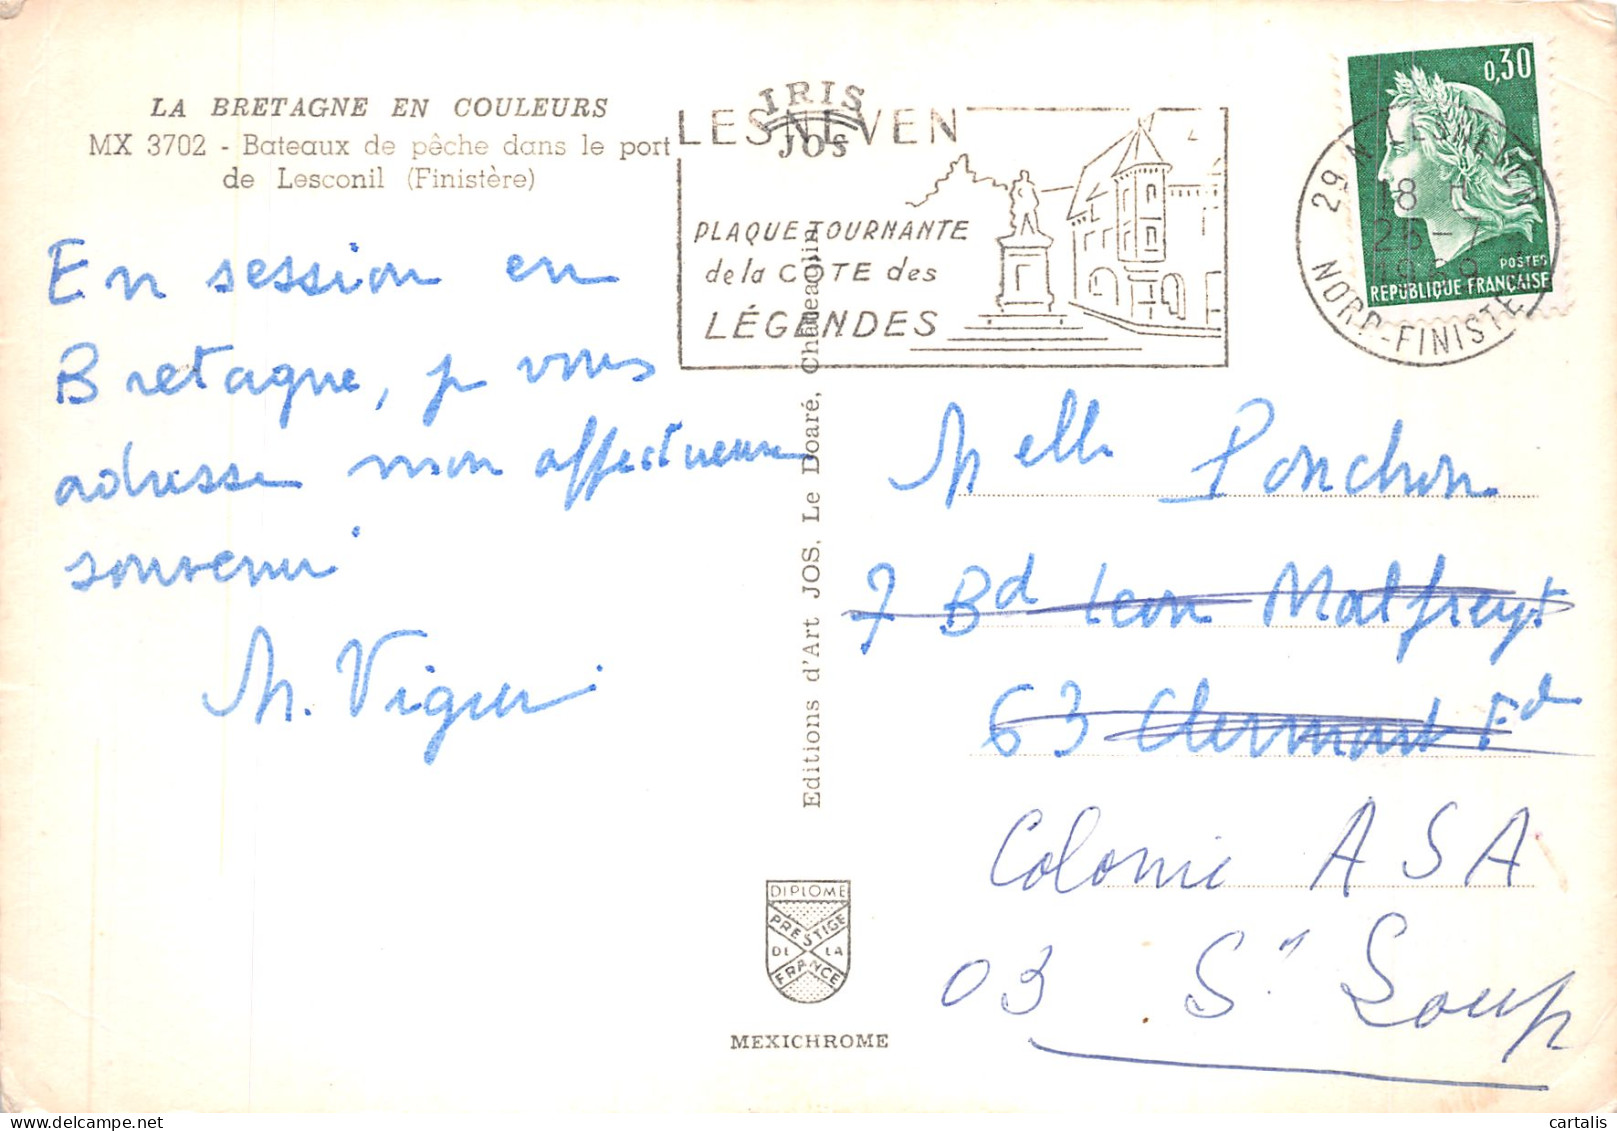 LA BRETAGNE EN COULEURS
MX 3702 - Bateaux de pêche dans le port
de Lesconil (Finistère)
IRIS
JOS
LESNEVEN
PLAQUE TOURNANTE
de la COTE des
LÉGENDES
0,30
POSTES
REPUBLIQUE FRANÇAISE
29 N LESNEVEN
18 H
25-7
1969
NORD-FINISTERE
En session en
Bretagne, je vous
adresse mon affectueux
souvenir
M. Viguier
Editions d'Art JOS. Le Doaré, Chateaulin
Melle Ponchon
7 Bd Leon Malfreyt
63 Clermont Fd
Colonie ASA
03 St Loup
DIPLOME
PRESTIGE
DE LA
FRANCE
MEXICHROME
cartalis